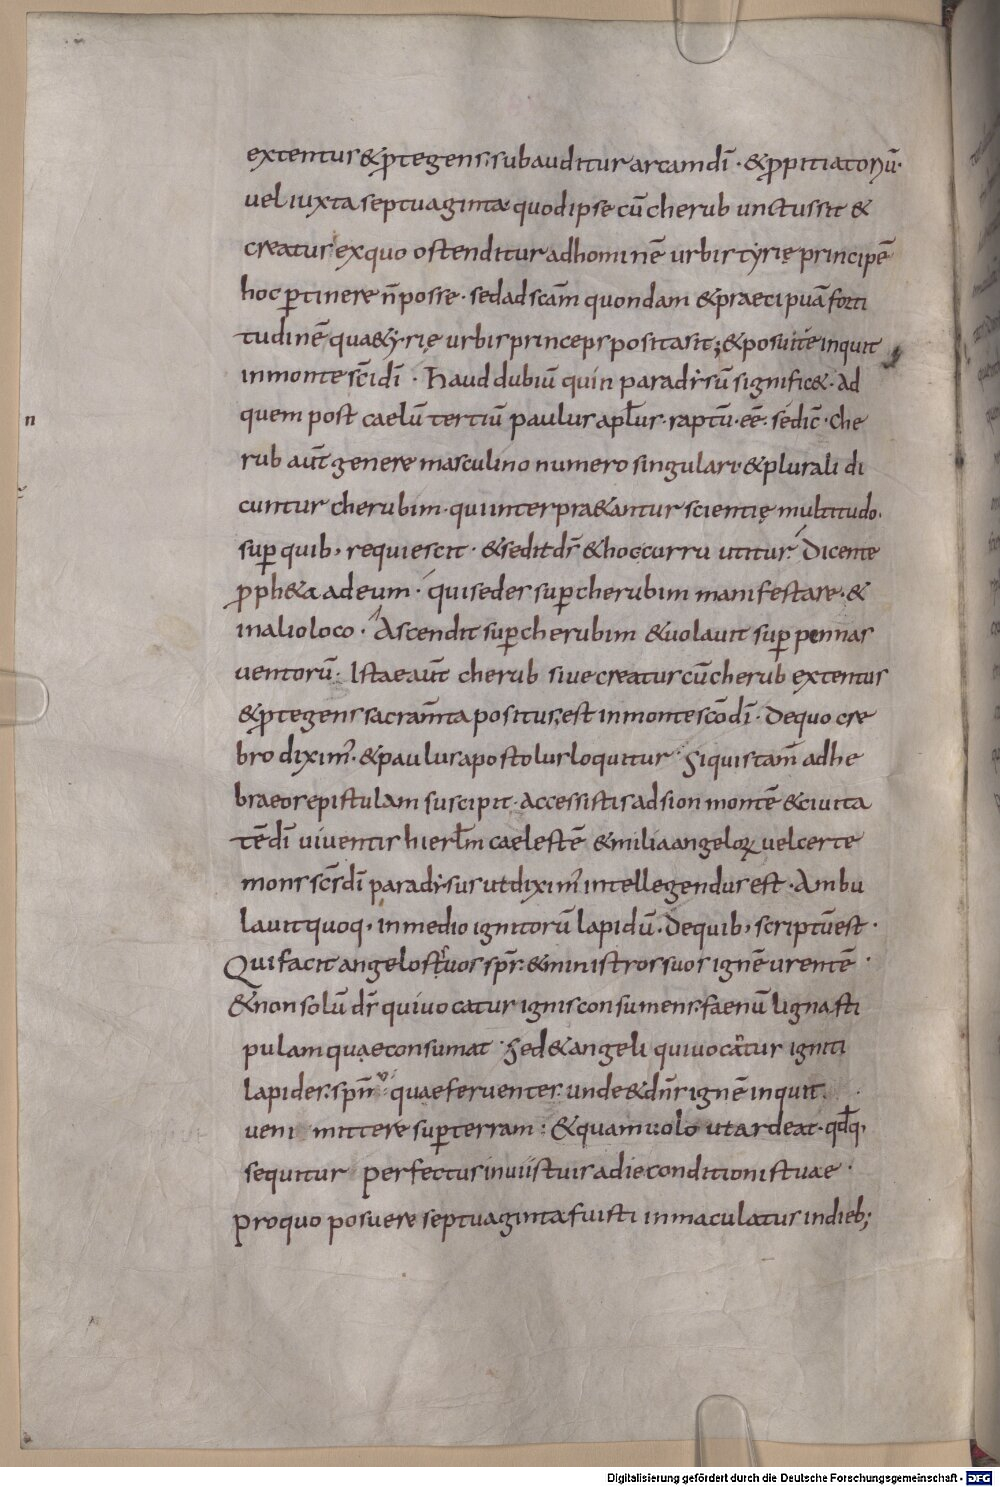 extentus & ꝓtegens; subauditur arcam dī · & ꝓpitiatoriū·
uel iuxta septuaginta· quod ipse cū cherub unctus sit &
creatus ex quo ostenditur ad hominē urbis tyrię principē
hoc ꝑtinere n̄ posse · sed ad sc̄am quondam & praecipuā forti
tudinē qua & yrię urbis princeps positasit; & posuite inquit
in monte sc̄i dī · Haud dubiū quin paradysū signific& · Ad
quem post caelū tertiū paulus apl̄us · raptū · eē · se dic̄ · Che
n
rub aut̄ genere masculino numero singulari & plurali di
cuntur cherubim · qui interpra&antur scientię multitudo·
suꝑ quib; requiescit · & sedit dr̄ & hoc curru utitur Dicente
ꝓph&a ad eum · qui sedes suꝑ cherubim manifestare · &
in alio loco · Ascendit suꝑ cherubim & uolauit suꝑ pennas
uentorū · Istae aut̄ cherub siue creatus cū cherub extentus
& ꝓtegens sacram̄ta positus; est in monte sc̄o dī · De quo cre
bro dixim' · & paulus apostolus loquitur · Si quis tam̄ ad he
braeos epistulam suscipit · accessistis ad sion montē & ciuita
tē dī uiuentis hierl̄m caelestē & milia angeloꝝ uel certe
mons sc̄s dī paradysus ut dixim' intellegendus est · Ambu
lauit quoq; in medio ignitorū lapidū · De quib; scriptū est ·
Qui facit angelos tuos sp̄s · & ministros suos ignē urentē ·
& non solū dr̄ qui uocatur ignis consumens · faenū ligna sti
pulam quae consumat · Sed & angeli qui uocantur igniti
lapides · sp̄ns quae feruentes · unde & dn̄s ignē inquit
ueni mittere suꝑ terram : & quam uolo ut ardeat · qđq;
sequitur perfectus in uiis tuis a die conditionis tuae ·
pro quo posuere septuaginta fuisti inmaculatus in dieb;
Digitalisierung gefördert durch die Deutsche Forschungsgemeinschaft - DFG